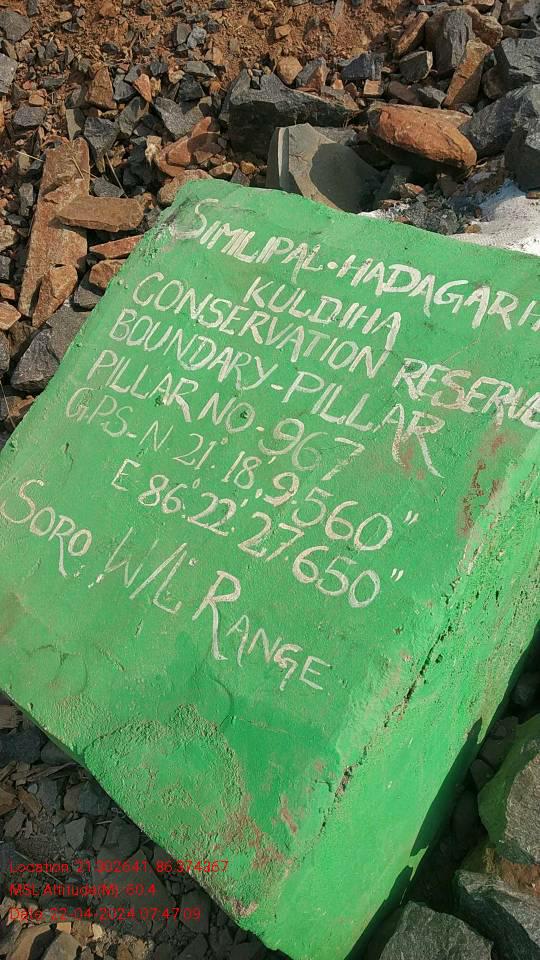 SIMILIPAL-HADAGARH
KULDIHA
CONSERVATION RESERVE
BOUNDARY-PILLAR
PILLAR NO-967
G.P.S-N 21°.18'.9.560"
E 86°.22'.27.650"
SORO, W/L RANGE
Location: 21.302641, 86.374357
MSL Altitude(M): 60.4
Date: 22-04-2024 07:47:09